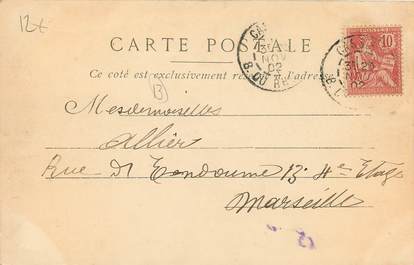 12€
CARTE POSTALE
Ce coté est exclusivement réservé à l'adresse
13
Mesdemoiselles
Allier
Rue d'Endoume 13. 4e Etage
Marseille
10
NOV
02
B. DU RH